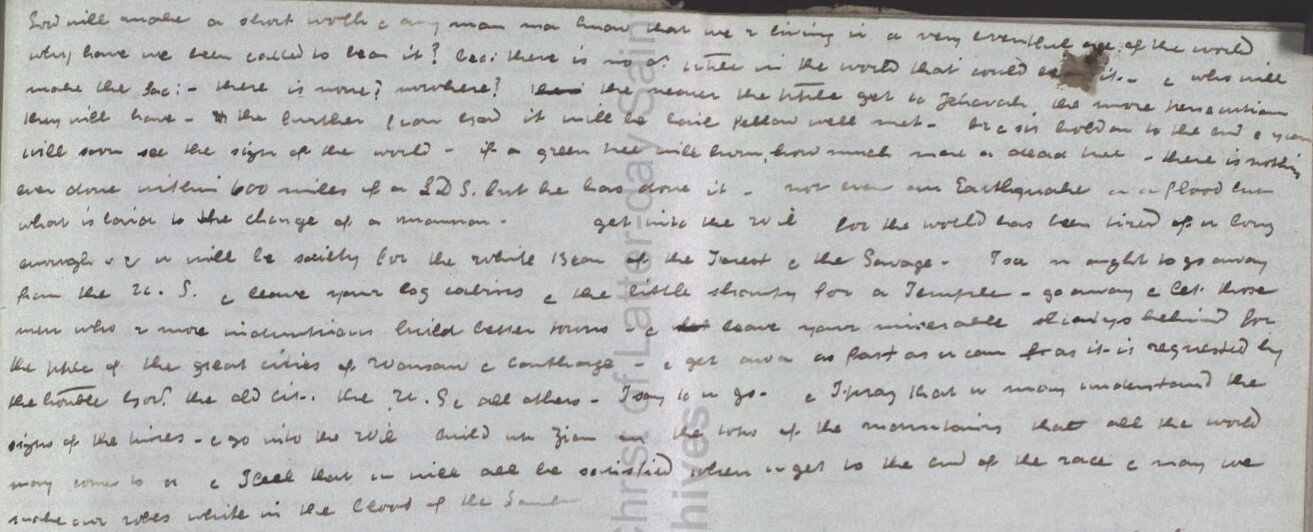 Lord will make a short work & any man ma know that we r living in a very eventful age of the world
why have we been called to bear it? bec: there is no or: people in the world that could bear it. - & who will
make the sac: - there is none? nowhere? the nearer the people get to Jehovah the more persecution
they will have - the further from God it will be hail fellow well met - br & sis hold on to the end & you
will soon see the sign of the world - if a green tree will burn, how much more a dead tree - there is nothing
ever done within 600 miles of a L D S. but he has done it - not even an Earthquake or a flood but
what is laid to the charge of a mormon - get into the Wil for the world has been tired of u long
enough - & u will be society for the White Bear of the Forest & the Savage - I say u ought to go away
from the U. S. & leave your log cabins & the little shanty for a Temple - go away & let those
men who r more industrious build better towns - & leave your miserable shanties behind for
the pple of the great cities of Warsaw & Carthage - & get awa as fast as u can as it is requested by
the honble Govr. the old cit. the U. S & all others - I say to u go - & I pray that u may understand the
signs of the times - & go into the Wil build up Zion in the tops of the mountains that all the world
may come to u & I feel that u will all be satisfied when u get to the end of the race & may we
make our robes white in the blood of the Lamb